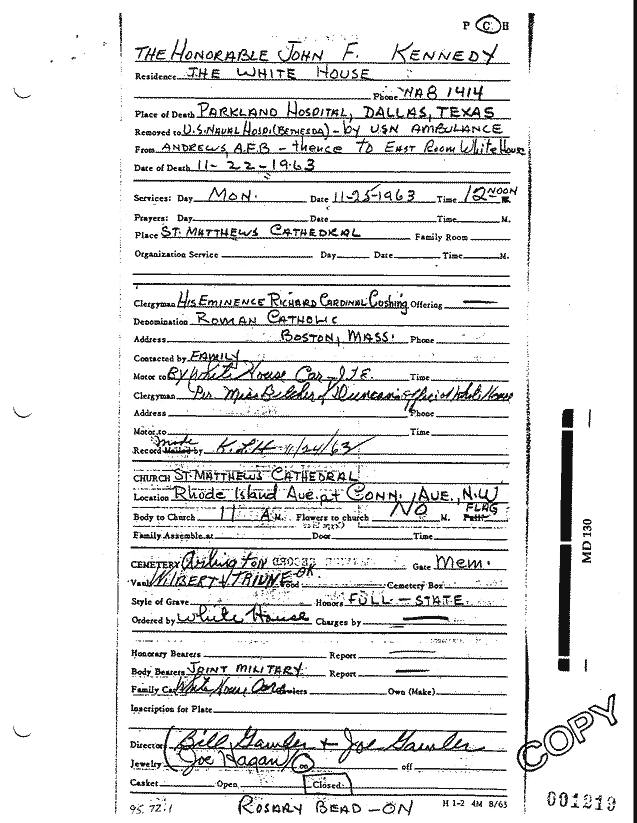 P C H
THE HONORABLE JOHN F. KENNEDY
Residence THE WHITE HOUSE
Phone NA8 1414
Place of Death PARKLAND HOSPITAL, DALLAS, TEXAS
Removed to U.S. NAVAL HOSP. (BETHESDA) - by USN AMBULANCE
From ANDREWS, A.F.B - thence TO EAST Room White House
Date of Death 11-22-1963
Services: Day MON. Date 11-25-1963 Time 12 NOON
Prayers: Day Date Time M.
Place ST. MATTHEWS CATHEDRAL Family Room
Organization Service Day Date Time M.
Clergyman HIS EMINENCE RICHARD CARDINAL CUSHING Offering —
Denomination ROMAN CATHOLIC
Address BOSTON, MASS. Phone
Contacted by FAMILY
Motor to By White House Car - Time
Clergyman Per Miss of Duncan's Office of White House
Address Phone
Motor to Time
Record Mailed by made K.L.H 11/24/63
CHURCH ST. MATTHEWS CATHEDRAL
Location Rhode Island Ave. at CONN. AVE., N.W
Body to Church 11 A M. Flowers to church NO M. FLAG
Family Assemble at Door Time
CEMETERY Arlington Gate Mem.
Vault WILBERT TRIUNE OK Cemetery Box
Style of Grave Honors FULL - STATE
Ordered by White House Charges by —
Honorary Bearers Report —
Body Bearers JOINT MILITARY Report —
Family Car White House Cars Own (Make)
Inscription for Plate
Director Bill Gawler + Joe Gawler
Jewelry Joe Hagan on off
Casket Open Closed
ROSARY BEAD - ON
H 1-2 4M 8/63
MD 130
COPY
001219